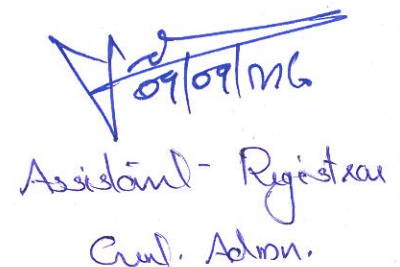 09/09/
Assistant - Registrar
Admn.